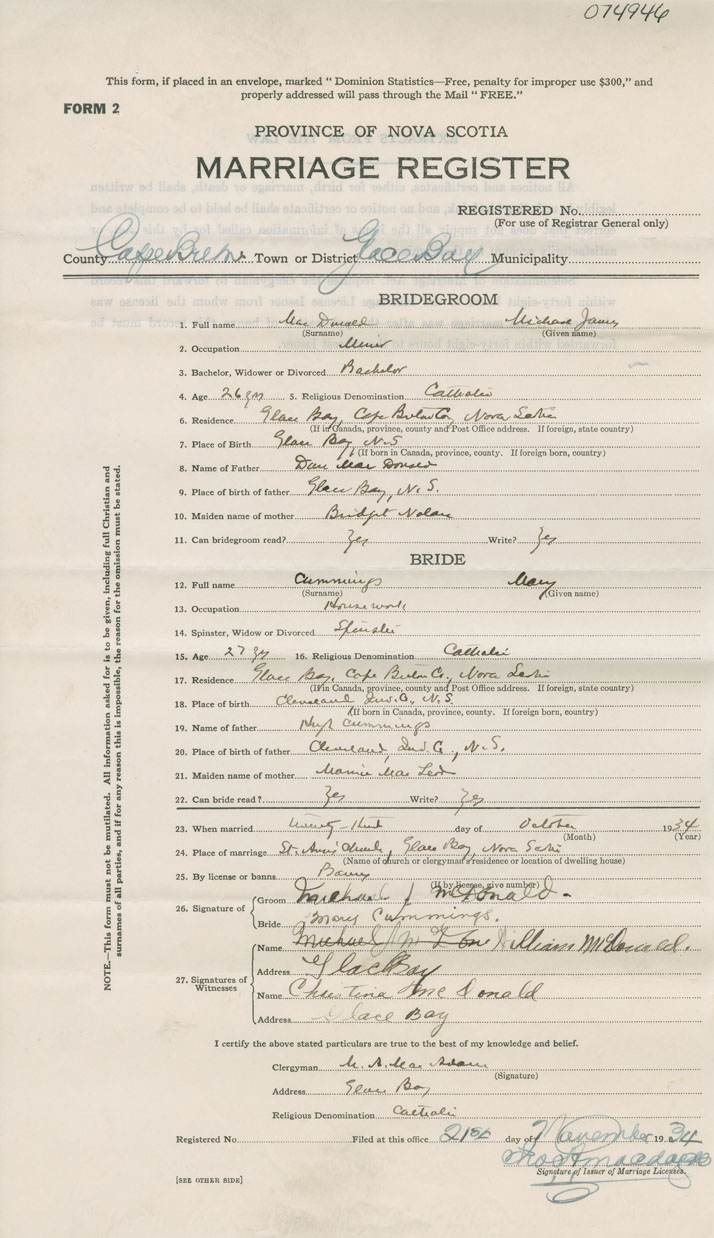 074946
This form, if placed in an envelope, marked " Dominion Statistics—Free, penalty for improper use $300," and
properly addressed will pass through the Mail " FREE."
FORM 2
PROVINCE OF NOVA SCOTIA
MARRIAGE REGISTER
REGISTERED No.
(For use of Registrar General only)
County Cape Breton Town or District Glace Bay Municipality
BRIDEGROOM
1. Full name Mac Donald Michael James
(Surname) (Given name)
2. Occupation Miner
3. Bachelor, Widower or Divorced Bachelor
4. Age 26 yrs 5. Religious Denomination Catholic
6. Residence Glace Bay, Cape Breton Co, Nova Scotia
(If in Canada, province, county and Post Office address. If foreign, state country)
7. Place of Birth Glace Bay, N.S
(If born in Canada, province, county. If foreign born, country)
8. Name of Father Dan Mac Donald
9. Place of birth of father Glace Bay, N.S.
10. Maiden name of mother Bridget Nolan
11. Can bridegroom read? Yes Write? Yes
BRIDE
12. Full name Cummings Mary
(Surname) (Given name)
13. Occupation Housework
14. Spinster, Widow or Divorced Spinster
15. Age 27 yrs 16. Religious Denomination Catholic
17. Residence Glace Bay, Cape Breton Co., Nova Scotia
(If in Canada, province, county and Post Office address. If foreign, state country)
18. Place of birth Cleveland, Inv. C., N.S.
(If born in Canada, province, county. If foreign born, country)
19. Name of father Hugh Cummings
20. Place of birth of father Cleveland, Inv. C., N.S.
21. Maiden name of mother Mamie Mac Leod
22. Can bride read? Yes Write? Yes
23. When married twenty-third day of October 1934
(Month) (Year)
24. Place of marriage St. Ann's Church, Glace Bay, Nova Scotia
(Name of church or clergyman's residence or location of dwelling house)
25. By license or banns Banns
(If by license, give number)
26. Signature of Groom Michael J McDonald.
Bride Mary Cummings.
27. Signatures of Witnesses Name Michael J Mc Don William McDonald.
Address Glace Bay
Name Christina Mc Donald
Address Glace Bay
I certify the above stated particulars are true to the best of my knowledge and belief.
Clergyman M. A. Mac Adam
(Signature)
Address Glace Bay
Religious Denomination Catholic
Registered No. Filed at this office 21st day of November 1934
Signature of Issuer of Marriage Licenses.
[SEE OTHER SIDE]
NOTE.—This form must not be mutilated. All information asked for is to be given, including full Christian and
surnames of all parties, and if for any reason this is impossible, the reason for the omission must be stated.